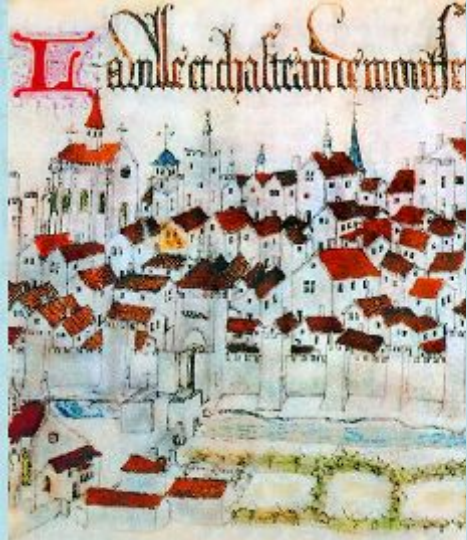 La ville et chasteau de montfe